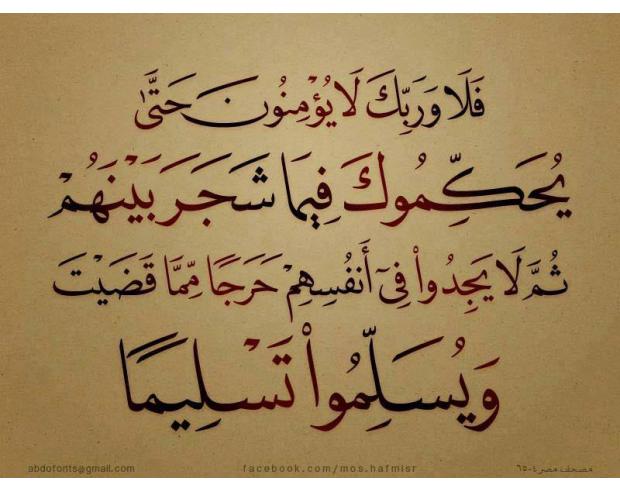 فَلَا وَرَبِّكَ لَا يُؤْمِنُونَ حَتَّىٰ
يُحَكِّمُوكَ فِيمَا شَجَرَ بَيْنَهُمْ
ثُمَّ لَا يَجِدُواْ فِىٓ أَنفُسِهِمْ حَرَجًا مِّمَّا قَضَيْتَ
وَيُسَلِّمُواْ تَسْلِيمًا
abdofonts@gmail.com facebook.com/mos.hafmisr مصحف مصر ٤-٦٥